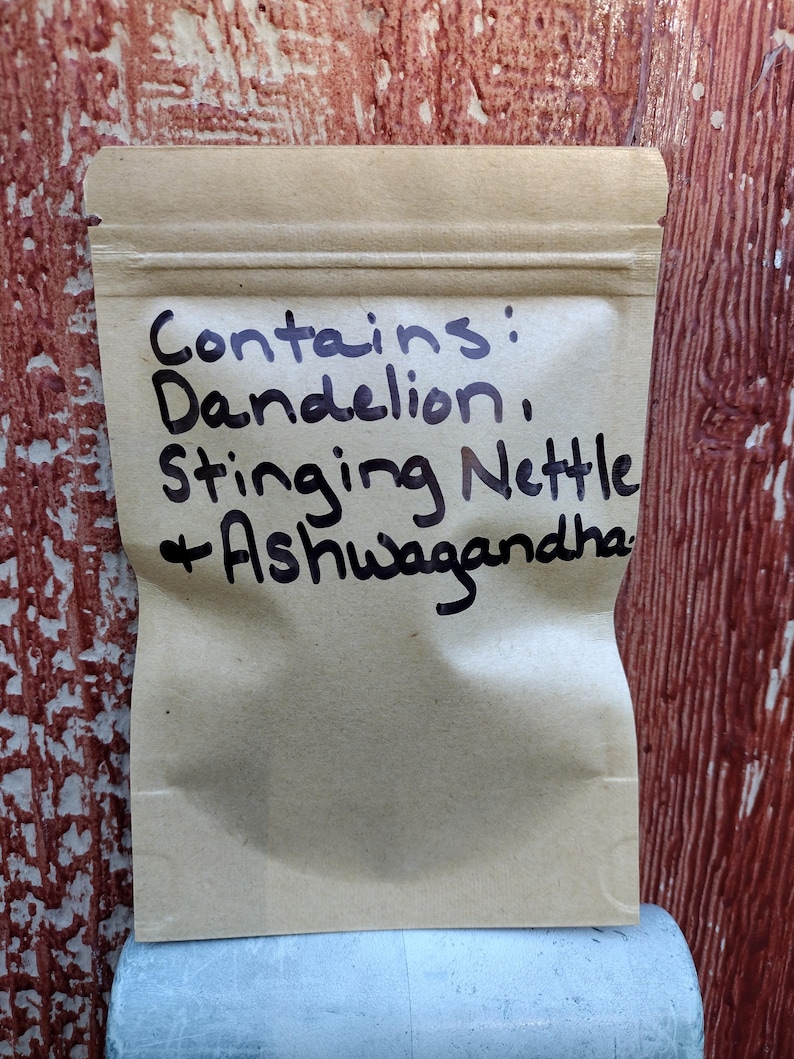 Contains:
Dandelion,
Stinging Nettle
& Ashwagandha.